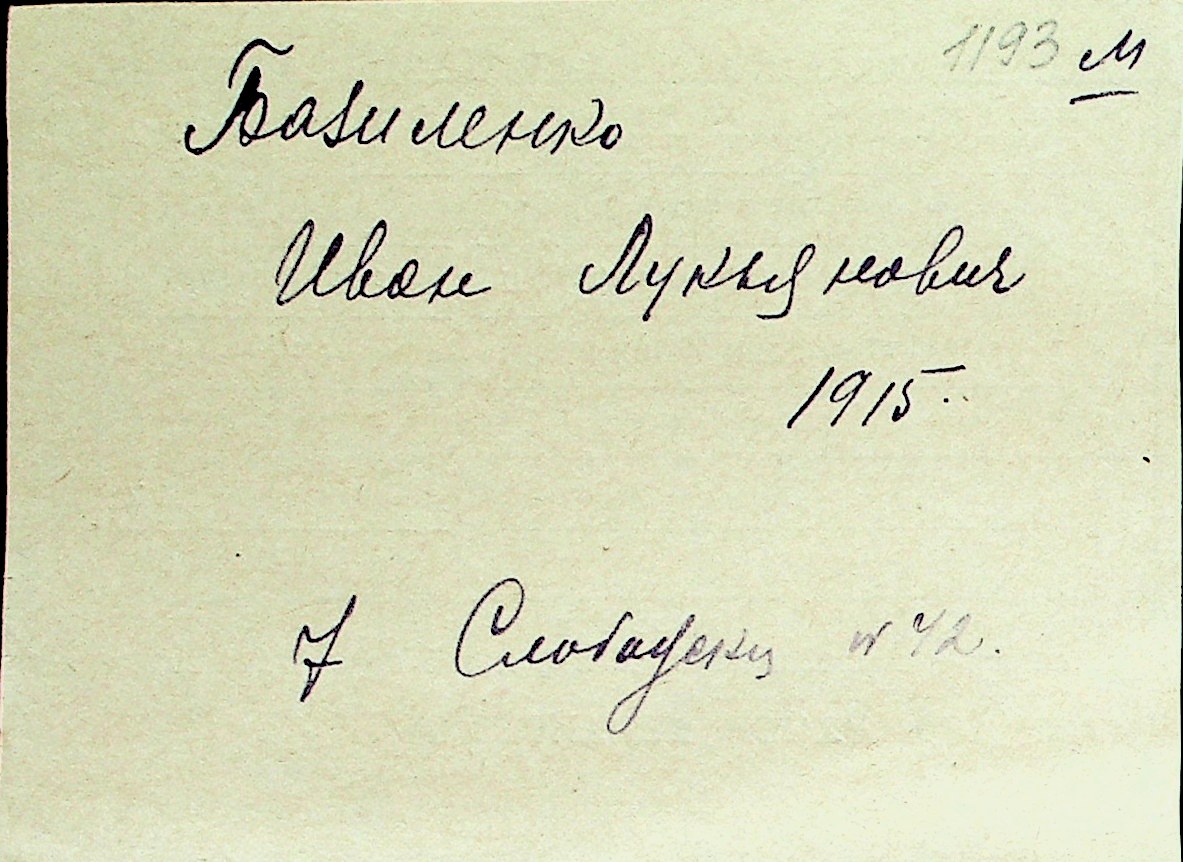 1193 м
Базиленко
Иван Лукьянович
1915.
7 Слободская № 42.